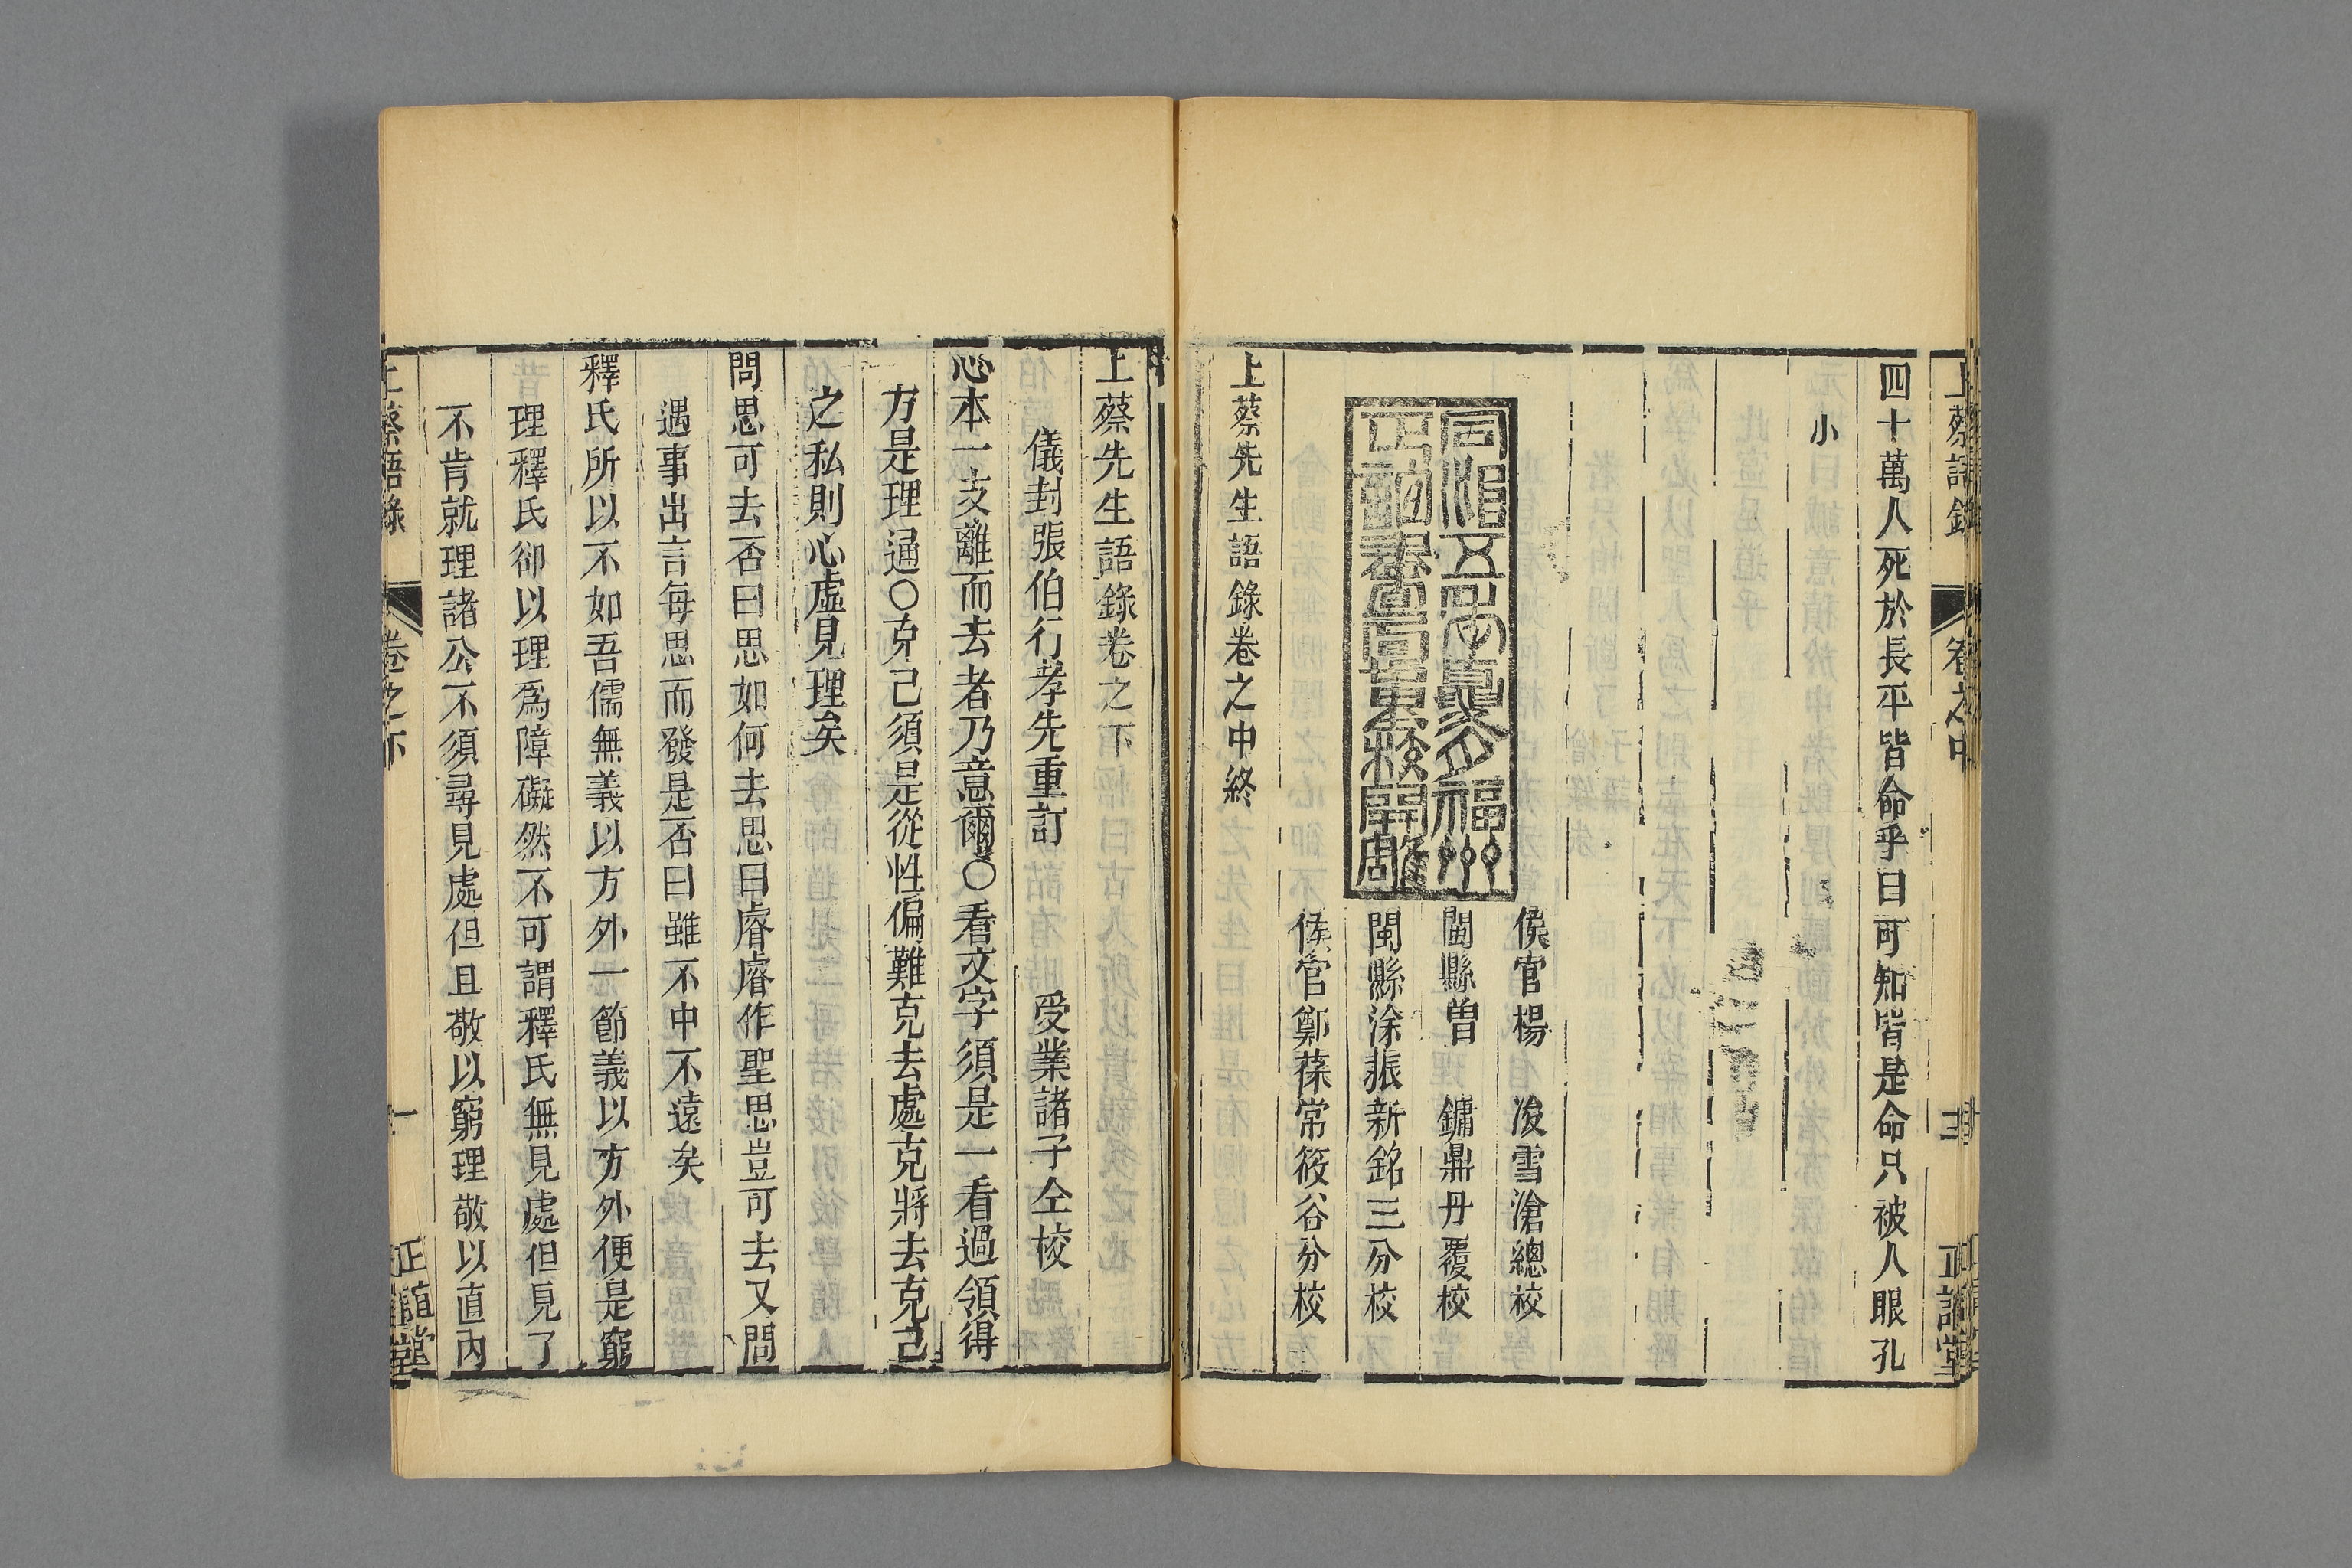 上蔡語錄 卷之中 正誼堂
四十萬人死於長平皆命乎曰可知皆是命只被人眼孔
小
同治五年夏月福州
正誼書局重校開雕
侯官楊 浚雪滄總校
閩縣曾 鏞鼎丹覆校
閩縣涂振新銘三分校
侯官鄭葆常筱谷分校
上蔡先生語錄卷之中終
上蔡先生語錄卷之下
儀封張伯行孝先重訂 受業諸子仝校
心本一支離而去者乃意爾○看文字須是一看過領得
方是理通○克己須是從性偏難克去處克將去克己
之私則心虛見理矣
問思可去否曰思如何去思曰睿睿作聖思豈可去又問
遇事出言每思而發是否曰雖不中不遠矣
釋氏所以不如吾儒無義以方外一節義以方外便是窮
理釋氏卻以理爲障礙然不可謂釋氏無見處但見了
不肯就理諸公不須尋見處但且敬以窮理敬以直內
上蔡語錄 卷之下 一 正誼堂